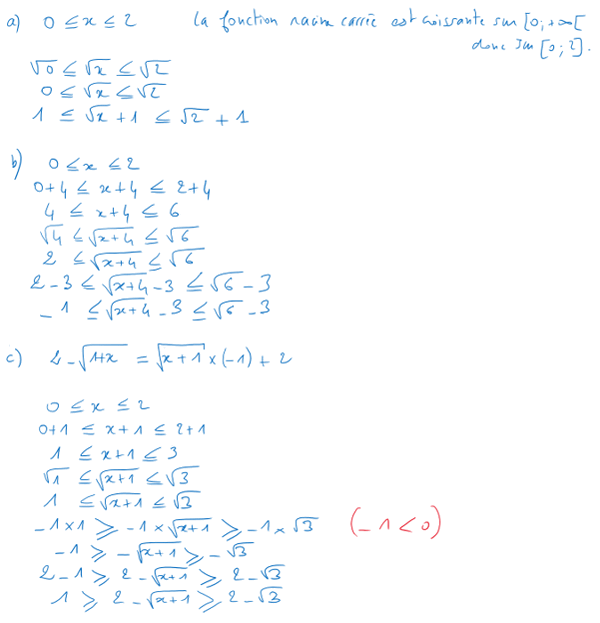 a) 0 ≤ x ≤ 2 La fonction racine carrée est croissante sur [0; +∞[
donc sur [0; 2].
√0 ≤ √x ≤ √2
0 ≤ √x ≤ √2
1 ≤ √x + 1 ≤ √2 + 1
b) 0 ≤ x ≤ 2
0+4 ≤ x+4 ≤ 2+4
4 ≤ x+4 ≤ 6
√4 ≤ √(x+4) ≤ √6
2 ≤ √(x+4) ≤ √6
2-3 ≤ √(x+4) - 3 ≤ √6 - 3
-1 ≤ √(x+4) - 3 ≤ √6 - 3
c) 2 - √(1+x) = √(x+1) × (-1) + 2
0 ≤ x ≤ 2
0+1 ≤ x+1 ≤ 2+1
1 ≤ x+1 ≤ 3
√1 ≤ √(x+1) ≤ √3
1 ≤ √(x+1) ≤ √3
-1×1 ≥ -1×√(x+1) ≥ -1×√3 (-1<0)
-1 ≥ -√(x+1) ≥ -√3
2-1 ≥ 2-√(x+1) ≥ 2-√3
1 ≥ 2-√(x+1) ≥ 2-√3